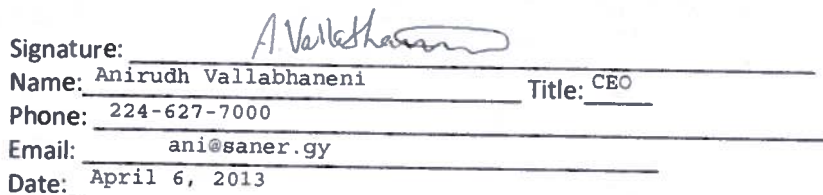 Signature: A. Vallabhaneni
Name: Anirudh Vallabhaneni Title: CEO
Phone: 224-627-7000
Email: ani@saner.gy
Date: April 6, 2013